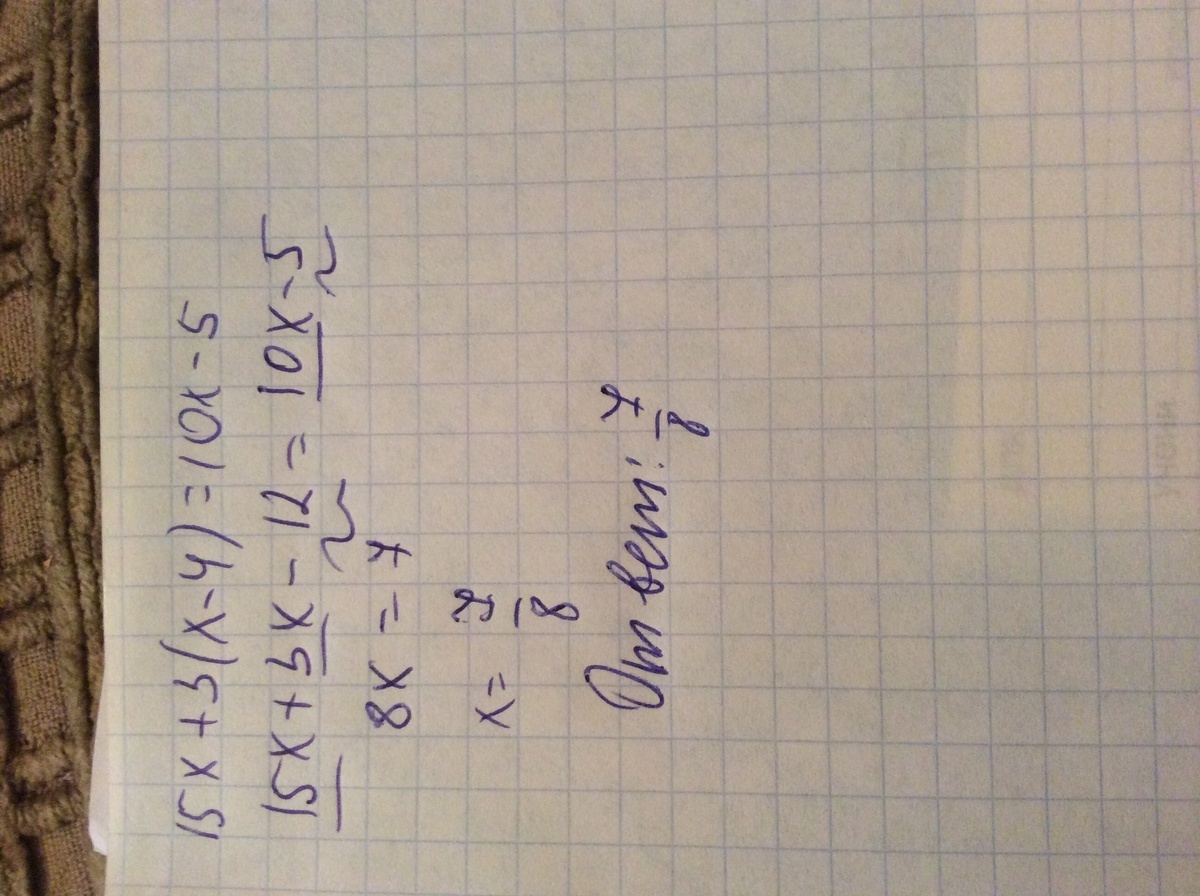 15x+3(x-4)=10x-5
15x+3x-12=10x-5
8x=7
x=7/8
Ответ: 7/8